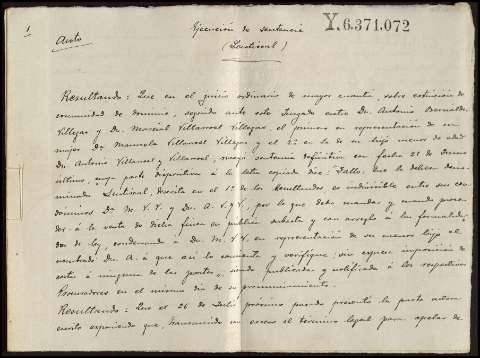 1
Auto
Ejecución de sentencia
Y.6.371.072
Resultando: Que en el juicio ordinario de mayor cuantía sobre extinción de
comunidad de dominio, seguido ante este Juzgado entre Dn. Antonio
Villegas y Dn. Marcial Villarroel Villegas, el primero en representación de su
mujer Dª Manuela Villarroel Villegas y el 2º en la de su hijo menor de edad
Dn. Antonio Villarroel y Villarroel, sentencia definitiva con fecha 21 de
último, cuya parte dispositiva á la letra copiada dice: Fallo: Que la dehesa
descrita en el 1º de los Resultandos es indivisible entre sus con-
dominos Dª M. V. V. y Dn. A. V. y V., por lo que debo mandar y mando proce-
der á la venta de dicha finca en pública subasta y con arreglo á las formalida-
des de ley, condenando á Dn. M. V. V. en representación de su menor hijo el
nombrado Dn. A. á que así lo consienta y verifique; sin expresa imposición de
costas á ninguna de las partes, siendo publicada y notificada á los respectivos
Procuradores en el mismo día de su pronunciamiento.
Resultando: Que el 26 de Julio próximo pasado presentó la parte actora
escrito exponiendo que, transcurrido en exceso el término legal para apelar de